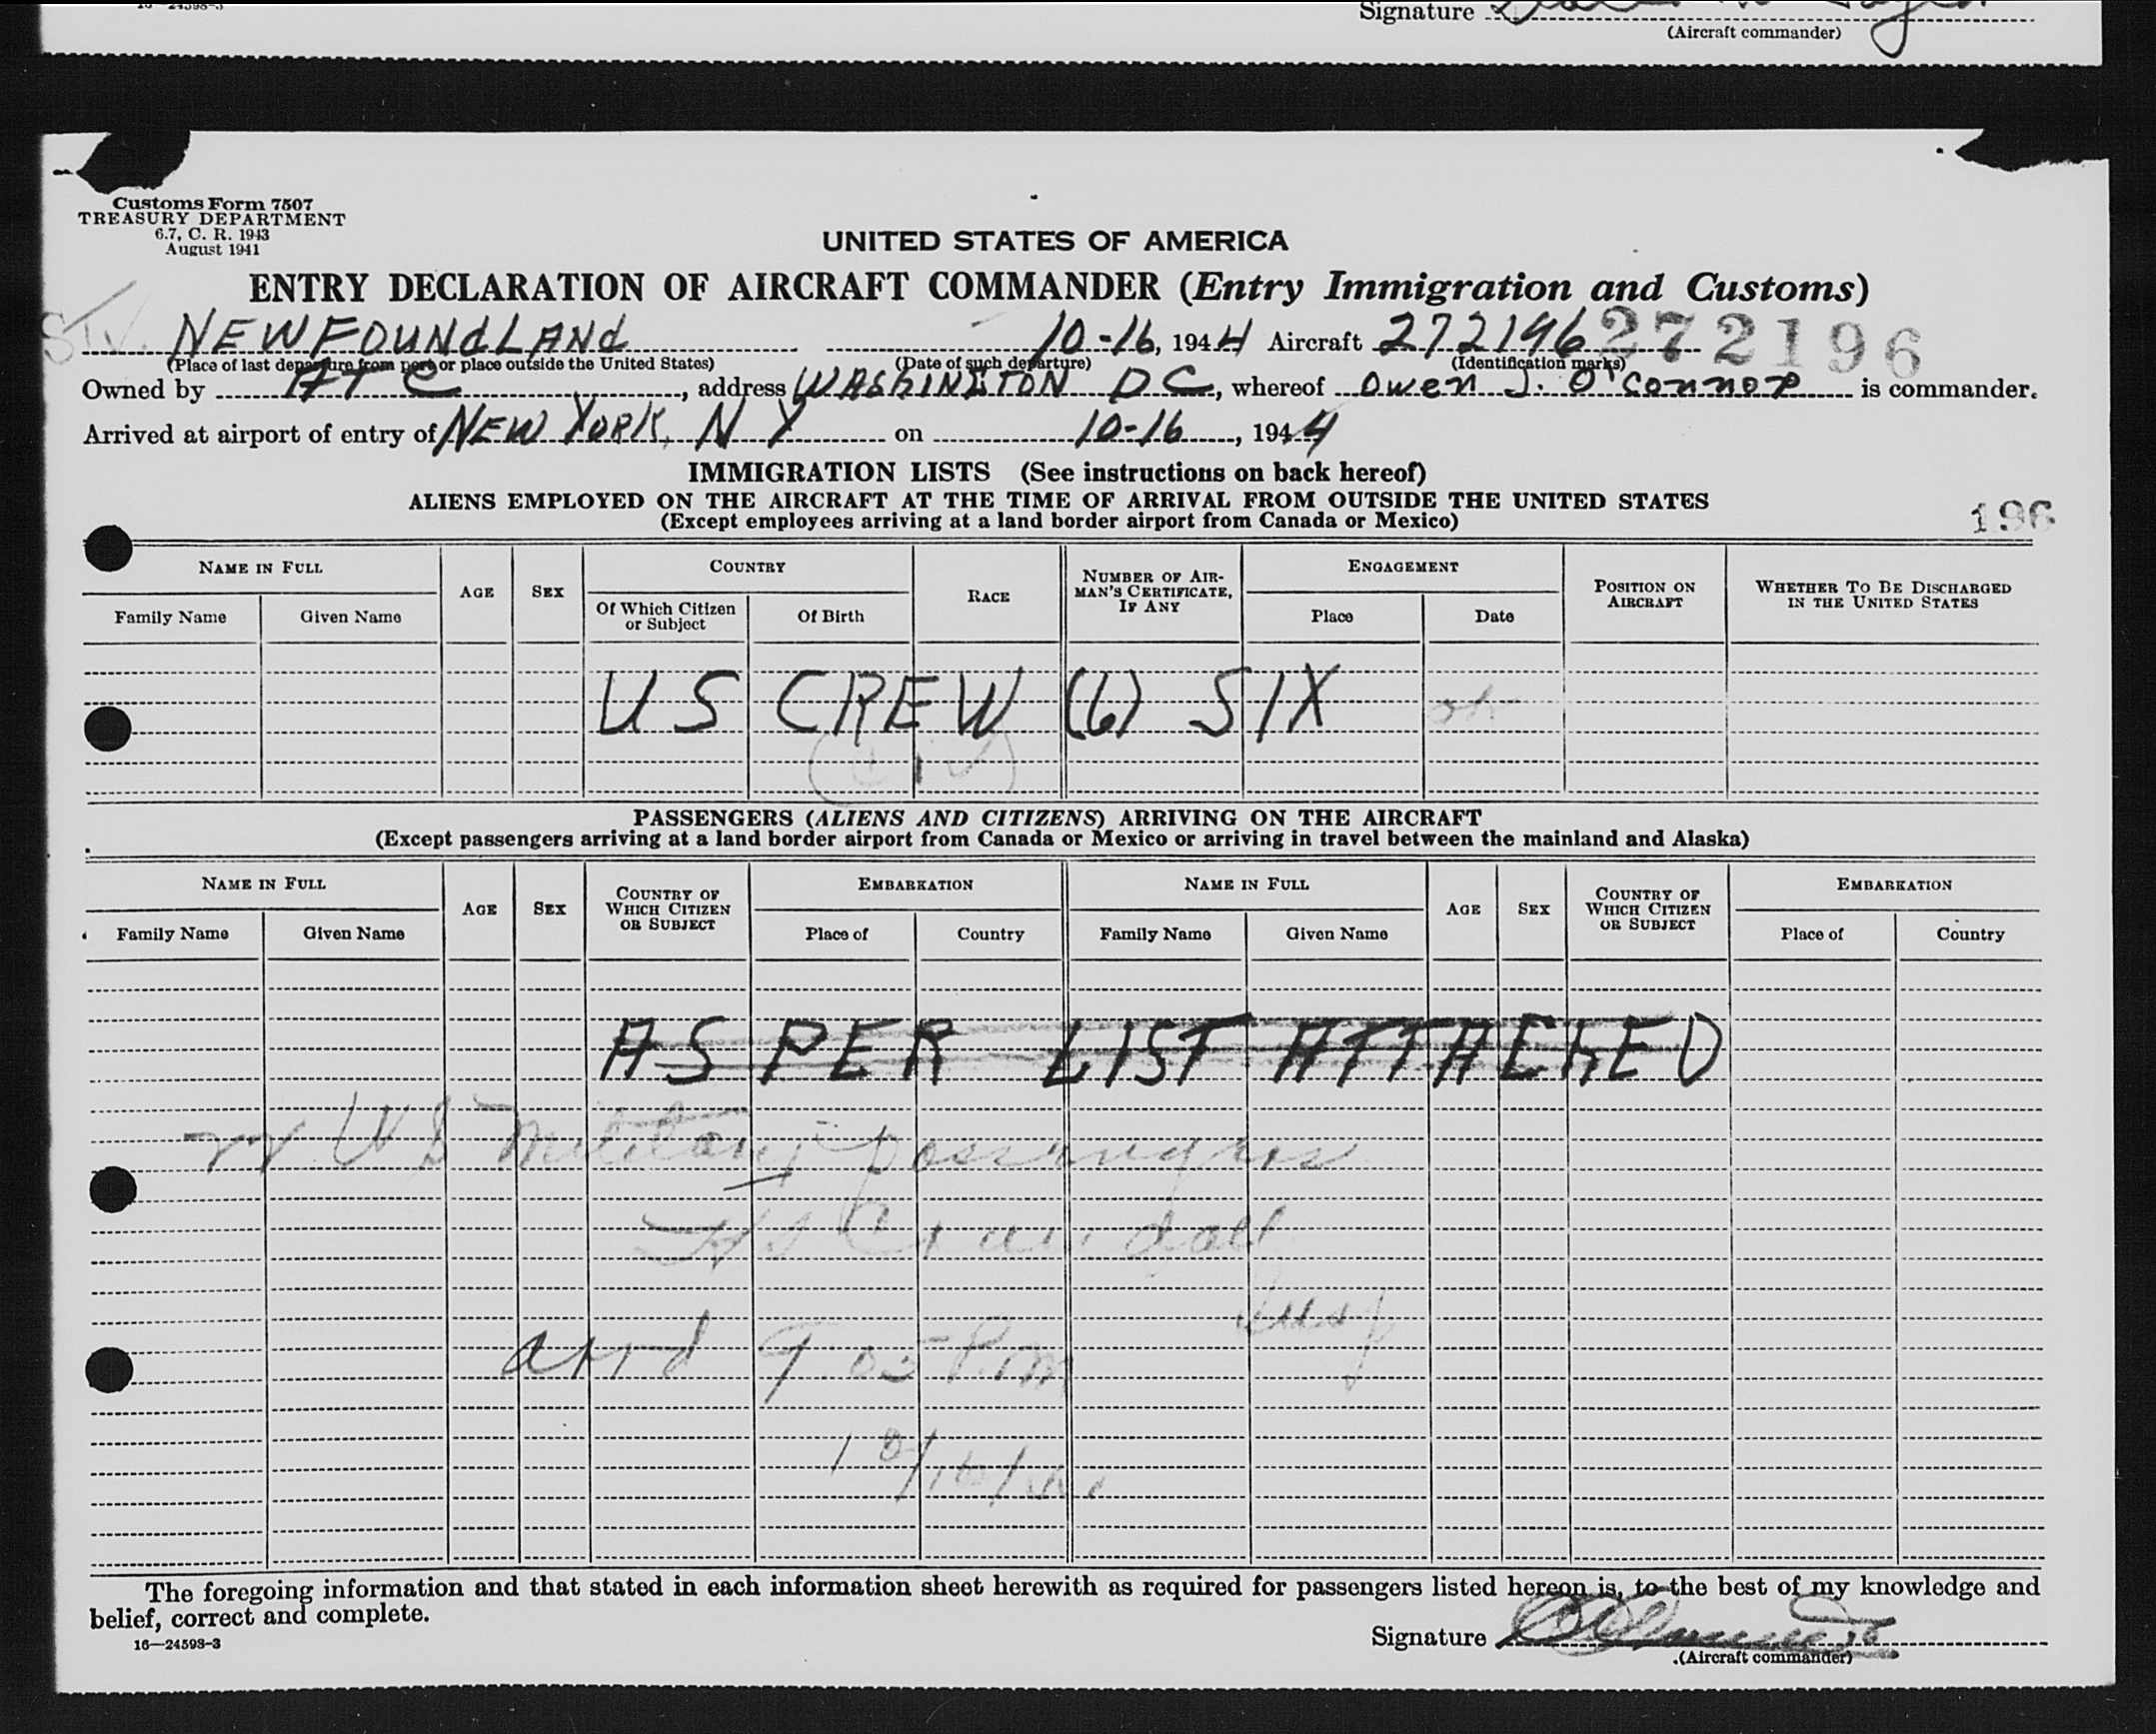 16—24593-3
Signature
(Aircraft commander)
Customs Form 7507
TREASURY DEPARTMENT
6.7, C. R. 1943
August 1941
UNITED STATES OF AMERICA
ENTRY DECLARATION OF AIRCRAFT COMMANDER (Entry Immigration and Customs)
NEWFOUNdLANd 10-16, 1944 Aircraft 272196 272196
(Place of last departure from port or place outside the United States) (Date of such departure) (Identification marks)
Owned by ATC, address WAShINGTON DC, whereof Owen J. O'Connor is commander.
Arrived at airport of entry of NEW YORK, N Y on 10-16, 1944
IMMIGRATION LISTS (See instructions on back hereof)
ALIENS EMPLOYED ON THE AIRCRAFT AT THE TIME OF ARRIVAL FROM OUTSIDE THE UNITED STATES
(Except employees arriving at a land border airport from Canada or Mexico)
196
NAME IN FULL AGE SEX COUNTRY RACE NUMBER OF AIRMAN'S CERTIFICATE, IF ANY ENGAGEMENT POSITION ON AIRCRAFT WHETHER TO BE DISCHARGED IN THE UNITED STATES
Family Name Given Name Of Which Citizen or Subject Of Birth Place Date
US CREW (6) SIX ok
PASSENGERS (ALIENS AND CITIZENS) ARRIVING ON THE AIRCRAFT
(Except passengers arriving at a land border airport from Canada or Mexico or arriving in travel between the mainland and Alaska)
NAME IN FULL AGE SEX COUNTRY OF WHICH CITIZEN OR SUBJECT EMBARKATION NAME IN FULL AGE SEX COUNTRY OF WHICH CITIZEN OR SUBJECT EMBARKATION
Family Name Given Name Place of Country Family Name Given Name Place of Country
AS PER LIST ATTAChED
US Military passengers
Crandall
Insp
arrd 9:05 P.m
10/16/44
The foregoing information and that stated in each information sheet herewith as required for passengers listed hereon is, to the best of my knowledge and
belief, correct and complete.
16—24593-3
Signature
(Aircraft commander)